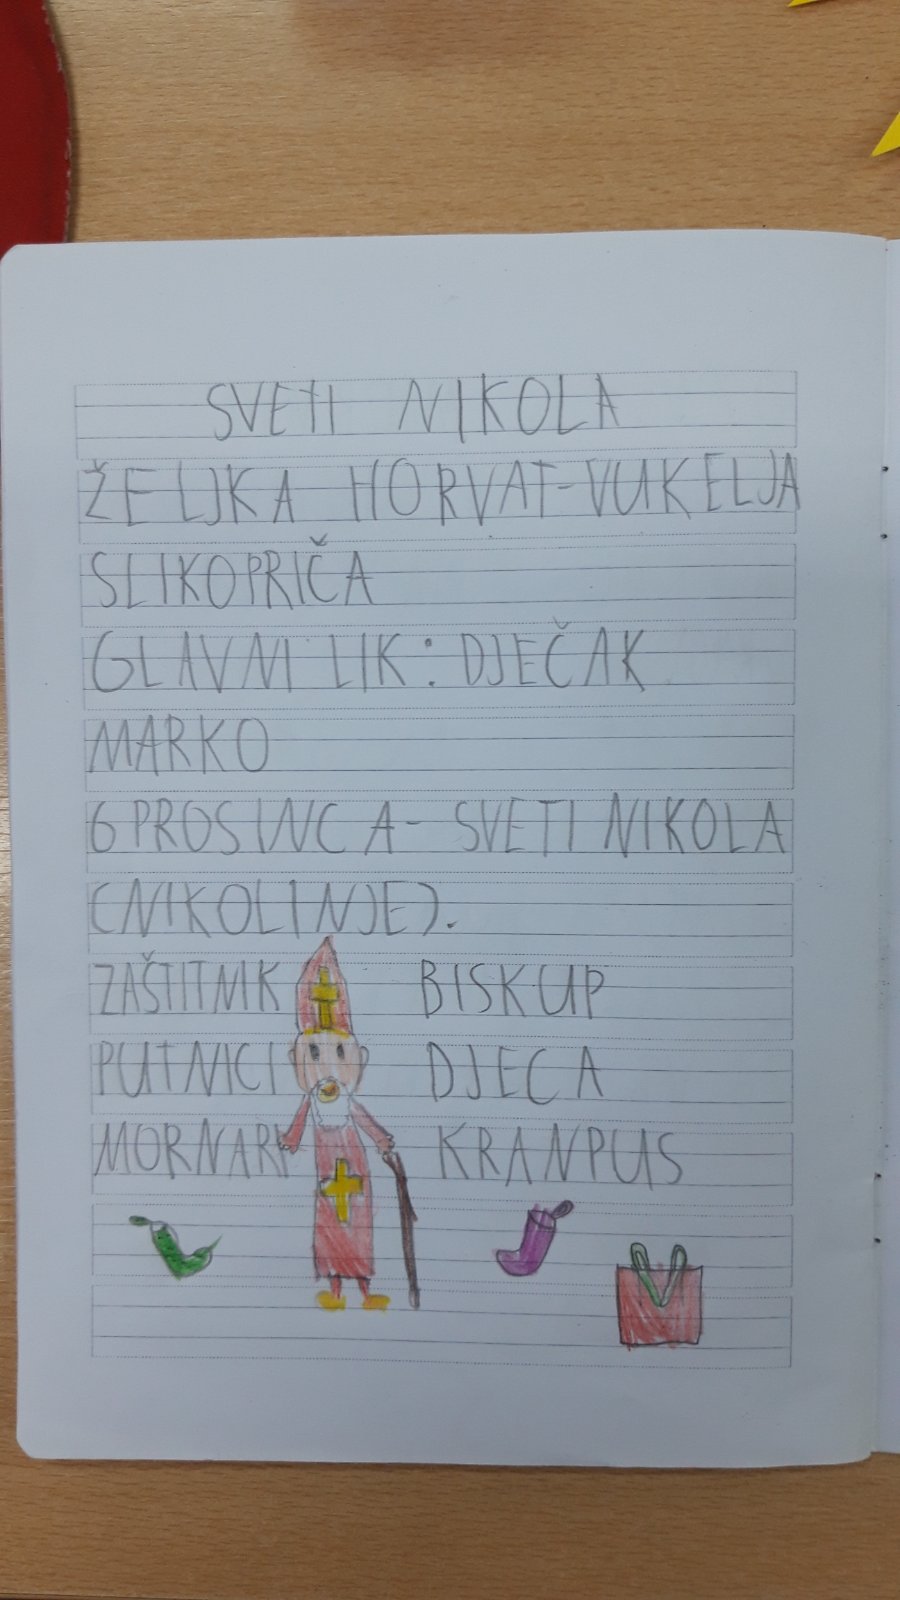 SVETI NIKOLA
ŽELJKA HORVAT-VUKELJA
SLIKOPRIČA
GLAVNI LIK: DJEČAK
MARKO
6 PROSINCA - SVETI NIKOLA
(NIKOLINJE).
ZAŠTITNIK BISKUP
PUTNICI DJECA
MORNARI KRANPUS